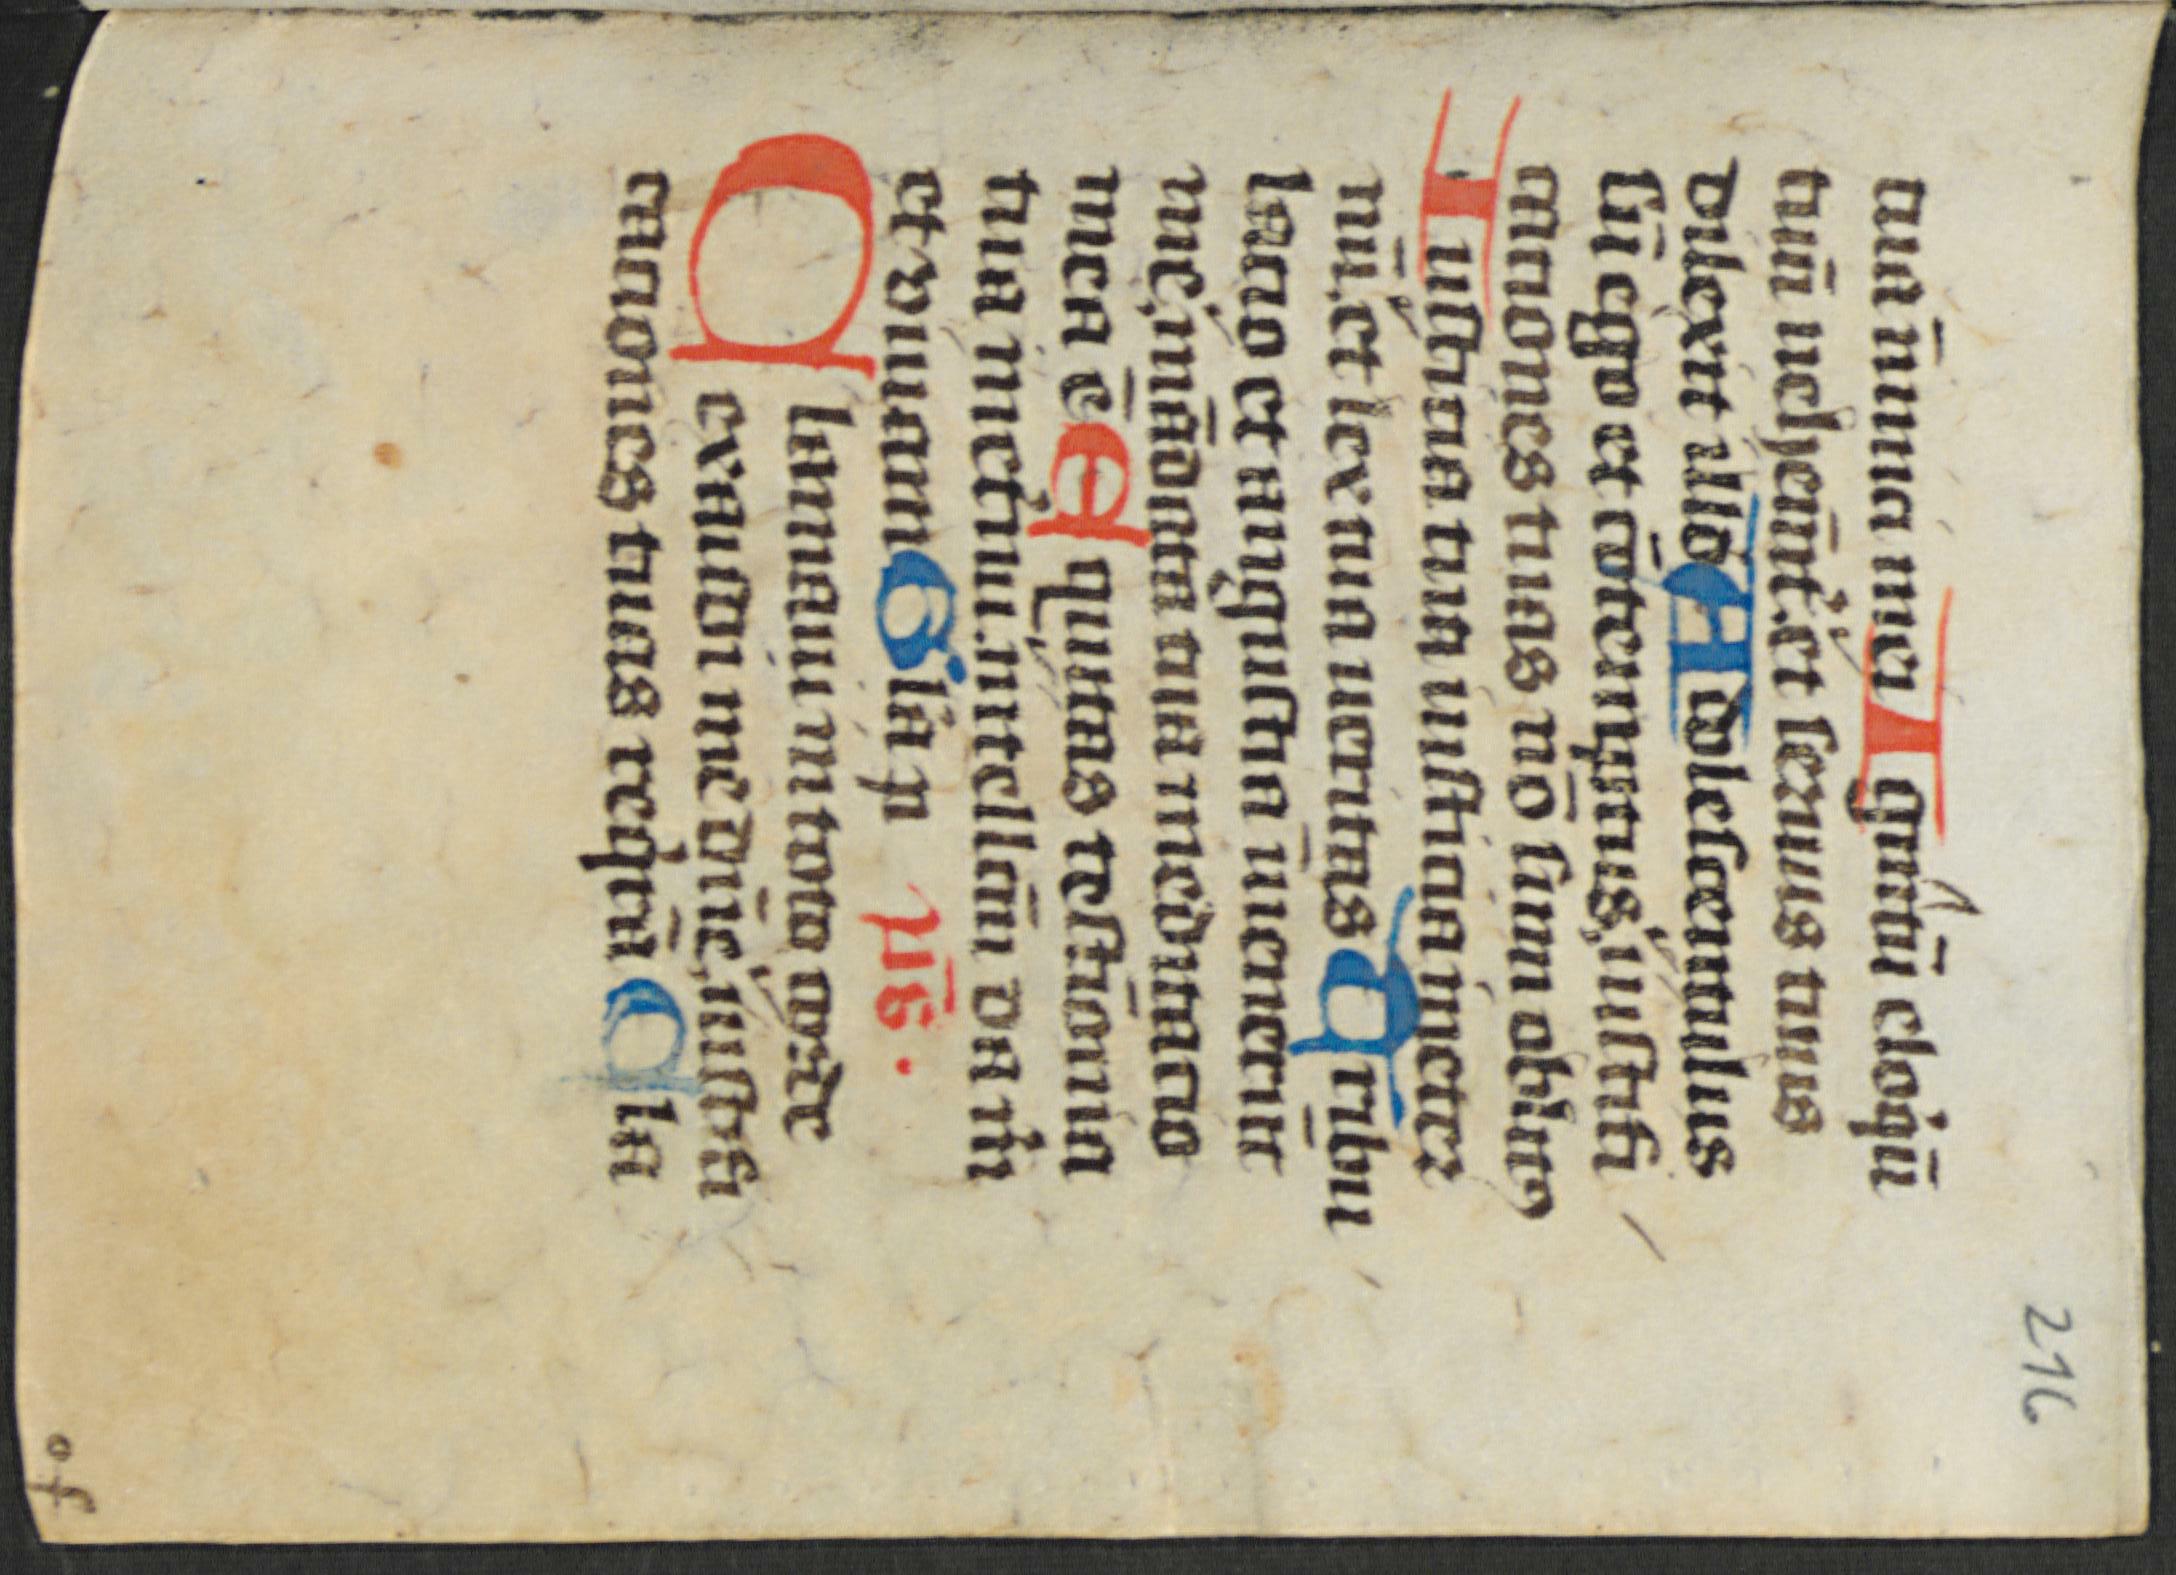 216
ua inimici mei Ignitū eloq̄ū
tuū uehem̄t̄. et seruus tuus
dilexit illd̄ Adolescentulus
sū ego et cōtemptus, iustifi
cationes tuas nō sum oblit9
Iustitia tua iustitia in et̄e
nū. et lex tua ueritas Tribu
latio et angustia inuenerūt
me, mādata tua meditatio
mea ē Equitas testimonia
tua in et̄nū. intellcm̄ da m̄
et viuam Gla p̄ ps̄.
Clamaui in toto corde
exaudi me dn̄e, iustifi
cationes tuas requirā Cla